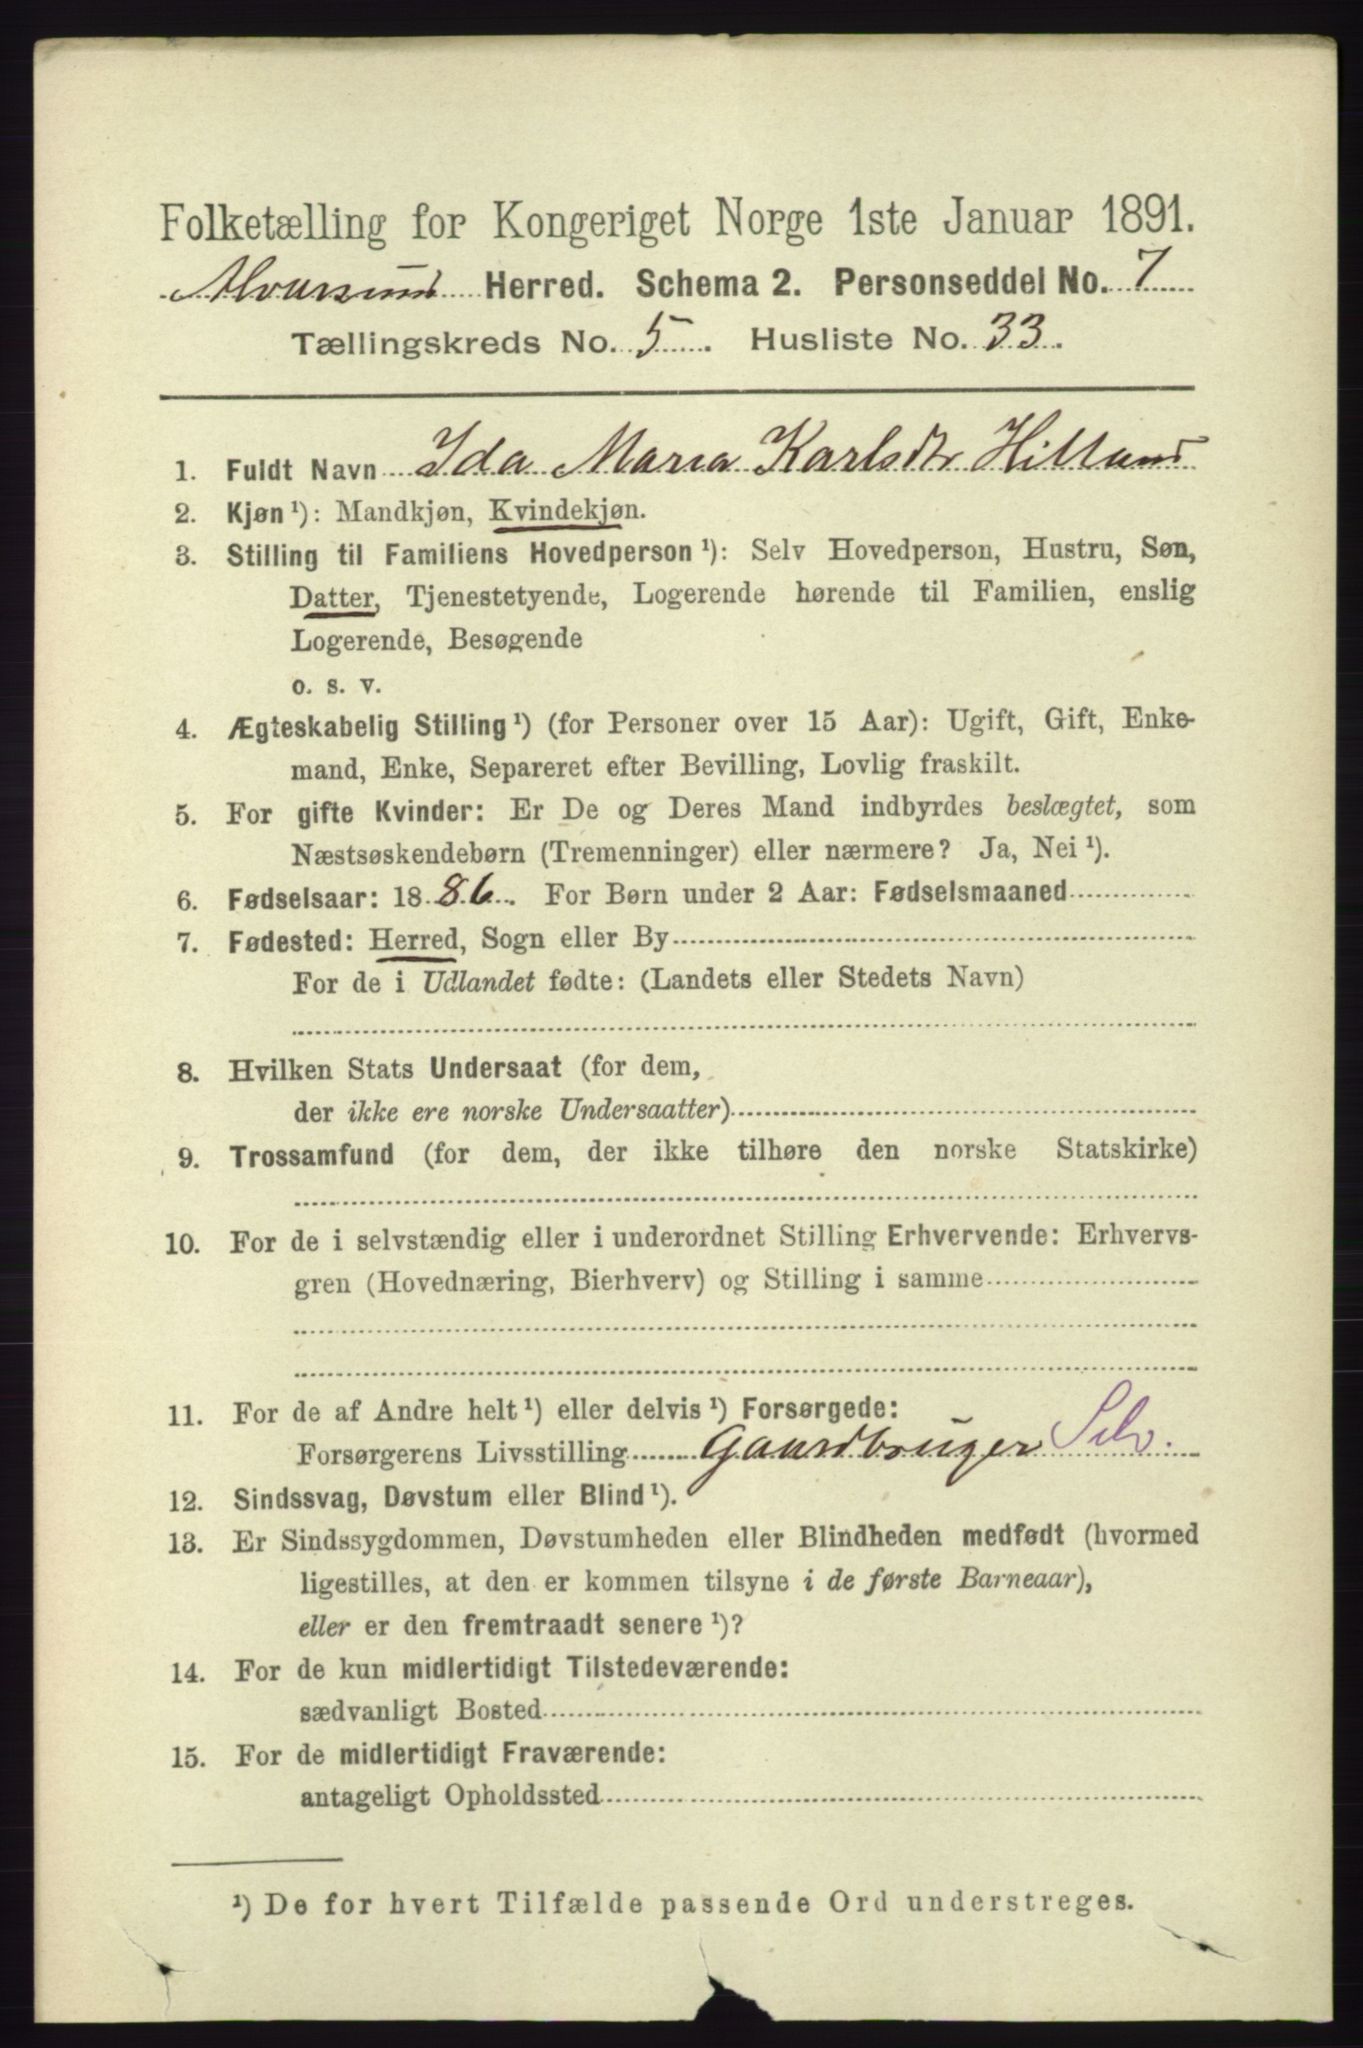 Folketælling for Kongeriget Norge 1ste Januar 1891.
Alversund Herred. Schema 2. Personseddel No. 7
Tællingskreds No. 5. Husliste No. 33.
1. Fuldt Navn Ida Maria Karlsdtr Hilland
2. Kjøn ¹): Mandkjøn, Kvindekjøn.
3. Stilling til Familiens Hovedperson ¹): Selv Hovedperson, Hustru, Søn,
Datter, Tjenestetyende, Logerende hørende til Familien, enslig
Logerende, Besøgende
o. s. v.
4. Ægteskabelig Stilling ¹) (for Personer over 15 Aar): Ugift, Gift, Enke-
mand, Enke, Separeret efter Bevilling, Lovlig fraskilt.
5. For gifte Kvinder: Er De og Deres Mand indbyrdes beslægtet, som
Næstsøskendebørn (Tremenninger) eller nærmere? Ja, Nei ¹).
6. Fødselsaar: 1886. For Børn under 2 Aar: Fødselsmaaned
7. Fødested: Herred, Sogn eller By
For de i Udlandet fødte: (Landets eller Stedets Navn)
8. Hvilken Stats Undersaat (for dem,
der ikke ere norske Undersaatter)
9. Trossamfund (for dem, der ikke tilhøre den norske Statskirke)
10. For de i selvstændig eller i underordnet Stilling Erhvervende: Erhvervs-
gren (Hovednæring, Bierhverv) og Stilling i samme
11. For de af Andre helt ¹) eller delvis ¹) Forsørgede:
Forsørgerens Livsstilling Gaardbruger Selv.
12. Sindssvag, Døvstum eller Blind ¹).
13. Er Sindssygdommen, Døvstumheden eller Blindheden medfødt (hvormed
ligestilles, at den er kommen tilsyne i de første Barneaar),
eller er den fremtraadt senere ¹)?
14. For de kun midlertidigt Tilstedeværende:
sædvanligt Bosted
15. For de midlertidigt Fraværende:
antageligt Opholdssted
¹) De for hvert Tilfælde passende Ord understreges.